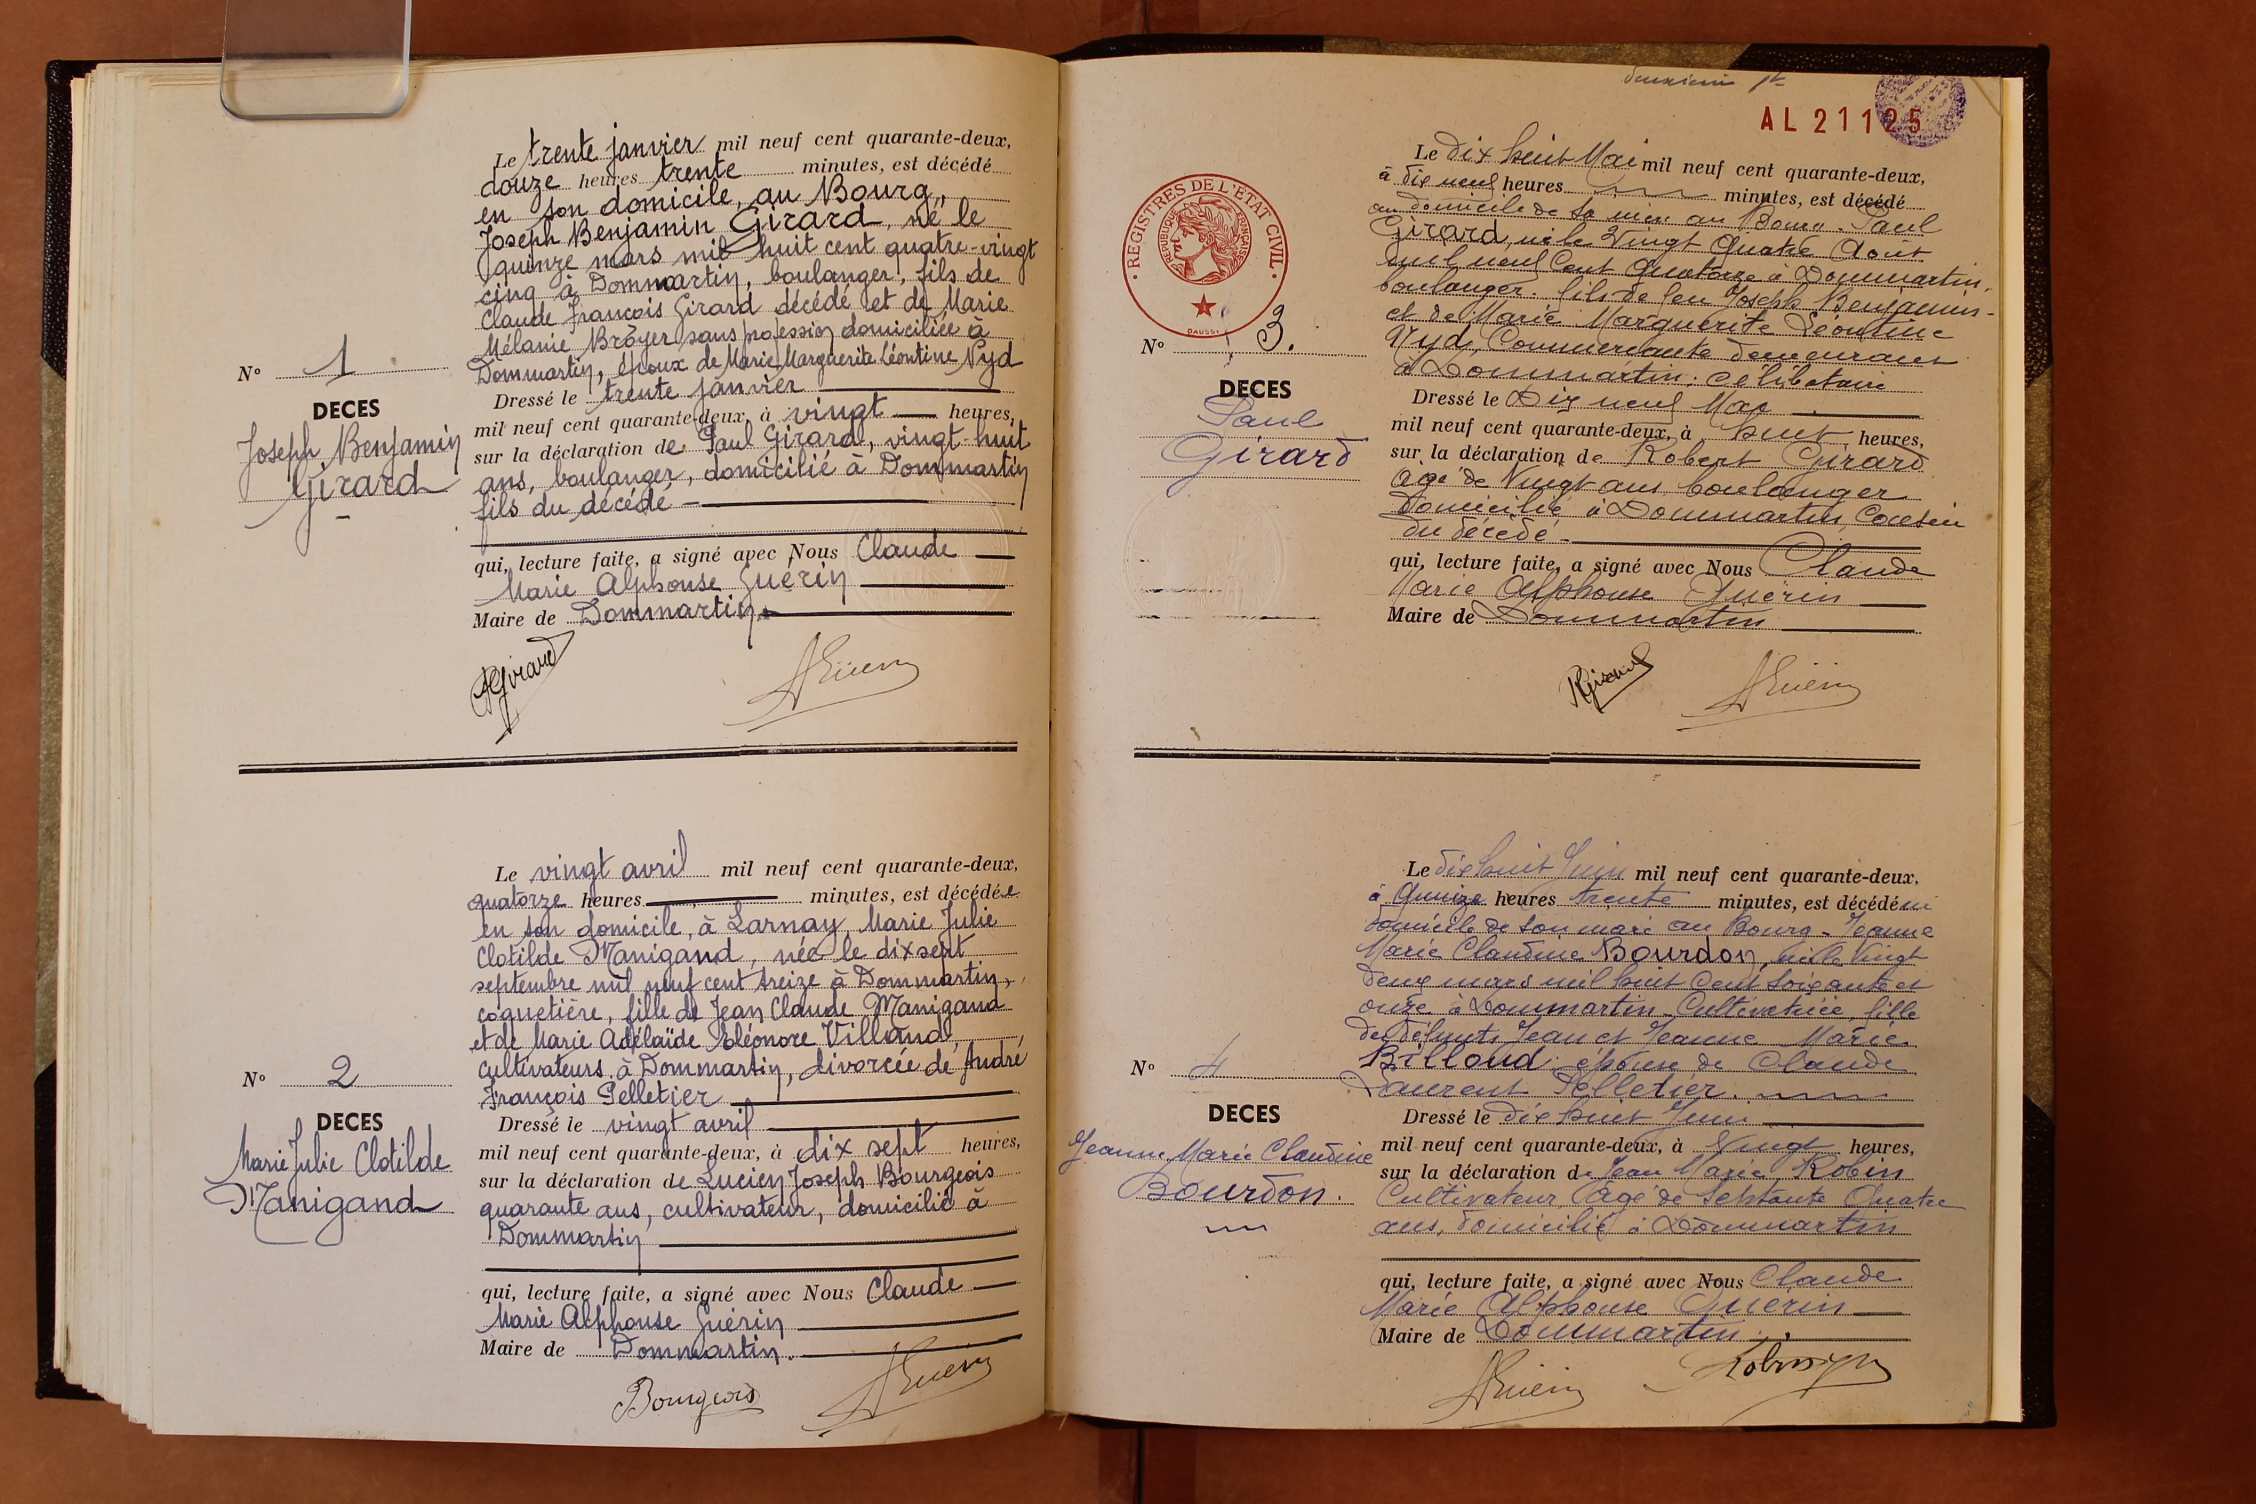 Le trente janvier mil neuf cent quarante-deux,
douze heures trente minutes, est décédé
en son domicile, au Bourg,
Joseph Benjamin Girard, né le
quinze mars mil huit cent quatre-vingt
cinq à Dommartin, boulanger, fils de
Claude François Girard décédé et de Marie
Mélanie Broyer sans profession domiciliée à
Dommartin, époux de Marie Marguerite Léontine Nyd
N° 1
DECES
Joseph Benjamin
Girard
Dressé le trente janvier
mil neuf cent quarante-deux, à vingt heures,
sur la déclaration de Paul Girard, vingt-huit
ans, boulanger, domicilié à Dommartin
fils du décédé
qui, lecture faite, a signé avec Nous Claude
Marie Alphonse Guérin
Maire de Dommartin.
Girard
AGuérin
Le vingt avril mil neuf cent quarante-deux,
quatorze heures minutes, est décédée
en son domicile, à Larnay, Marie Julie
Clotilde Manigand, née le dix sept
septembre mil neuf cent treize à Dommartin,
coquetière, fille de Jean Claude Manigand
et de Marie Adélaïde Eléonore Villand,
cultivateurs à Dommartin, divorcée de André
François Pelletier
N° 2
DECES
Marie Julie Clotilde
Manigand
Dressé le vingt avril
mil neuf cent quarante-deux, à dix sept heures,
sur la déclaration de Lucien Joseph Bourgeois
quarante ans, cultivateur, domicilié à
Dommartin
qui, lecture faite, a signé avec Nous Claude
Marie Alphonse Guérin
Maire de Dommartin.
Bourgeois
AGuérin
deuxième
AL 21125
REGISTRES DE L'ÉTAT CIVIL
RÉPUBLIQUE FRANÇAISE
DAUSSI
Le dix huit Mai mil neuf cent quarante-deux,
à dix neuf heures minutes, est décédé
au domicile de sa mère au Bourg - Paul
Girard, né le Vingt Quatre Août
mil neuf Cent Quatorze à Dommartin,
boulanger. fils de feu Joseph Benjamin
et de Marie Marguerite Léontine
Nyd, Commerçante demeurant
à Dommartin. Célibataire
N° 3.
DECES
Paul
Girard
Dressé le Dix neuf Mai
mil neuf cent quarante-deux, à huit heures,
sur la déclaration de Robert Girard
âgé de Vingt ans boulanger
domicilié à Dommartin, Cousin
du décédé
qui, lecture faite, a signé avec Nous Claude
Marie Alphonse Guérin
Maire de Dommartin
RGirard
AGuérin
Le dix huit Juin mil neuf cent quarante-deux.
à Quinze heures trente minutes, est décédée au
domicile de son mari au Bourg - Jeanne
Marie Claudine Bourdon, née le Vingt
deux mars mil huit Cent Soixante et
onze à Dommartin Cultivatrice, fille
de défunts Jean et Jeanne Marie
Billoud. épouse de Claude
Laurent Pelletier.
N° 4
DECES
Jeanne Marie Claudine
Bourdon.
Dressé le dix huit Juin
mil neuf cent quarante-deux, à Vingt heures,
sur la déclaration de Jean Marie Robin
Cultivateur, âgé de Septante Quatre
ans, domicilié à Dommartin
qui, lecture faite, a signé avec Nous Claude
Marie Alphonse Guérin
Maire de Dommartin.
AGuérin